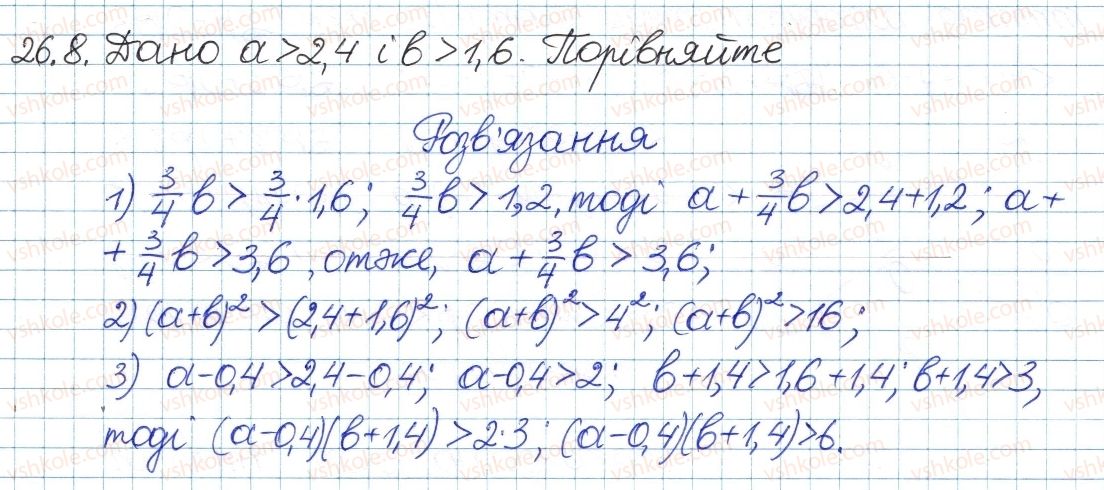 26.8. Дано a>2,4 і b>1,6. Порівняйте
Розв'язання
1) 3/4 b > 3/4 · 1,6; 3/4 b > 1,2, тоді a + 3/4 b > 2,4+1,2; a+
+ 3/4 b > 3,6, отже, a + 3/4 b > 3,6;
2) (a+b)² > (2,4+1,6)²; (a+b)² > 4²; (a+b)² > 16;
3) a-0,4 > 2,4-0,4; a-0,4 > 2; b+1,4 > 1,6+1,4; b+1,4 > 3,
тоді (a-0,4)(b+1,4) > 2·3; (a-0,4)(b+1,4) > 6.